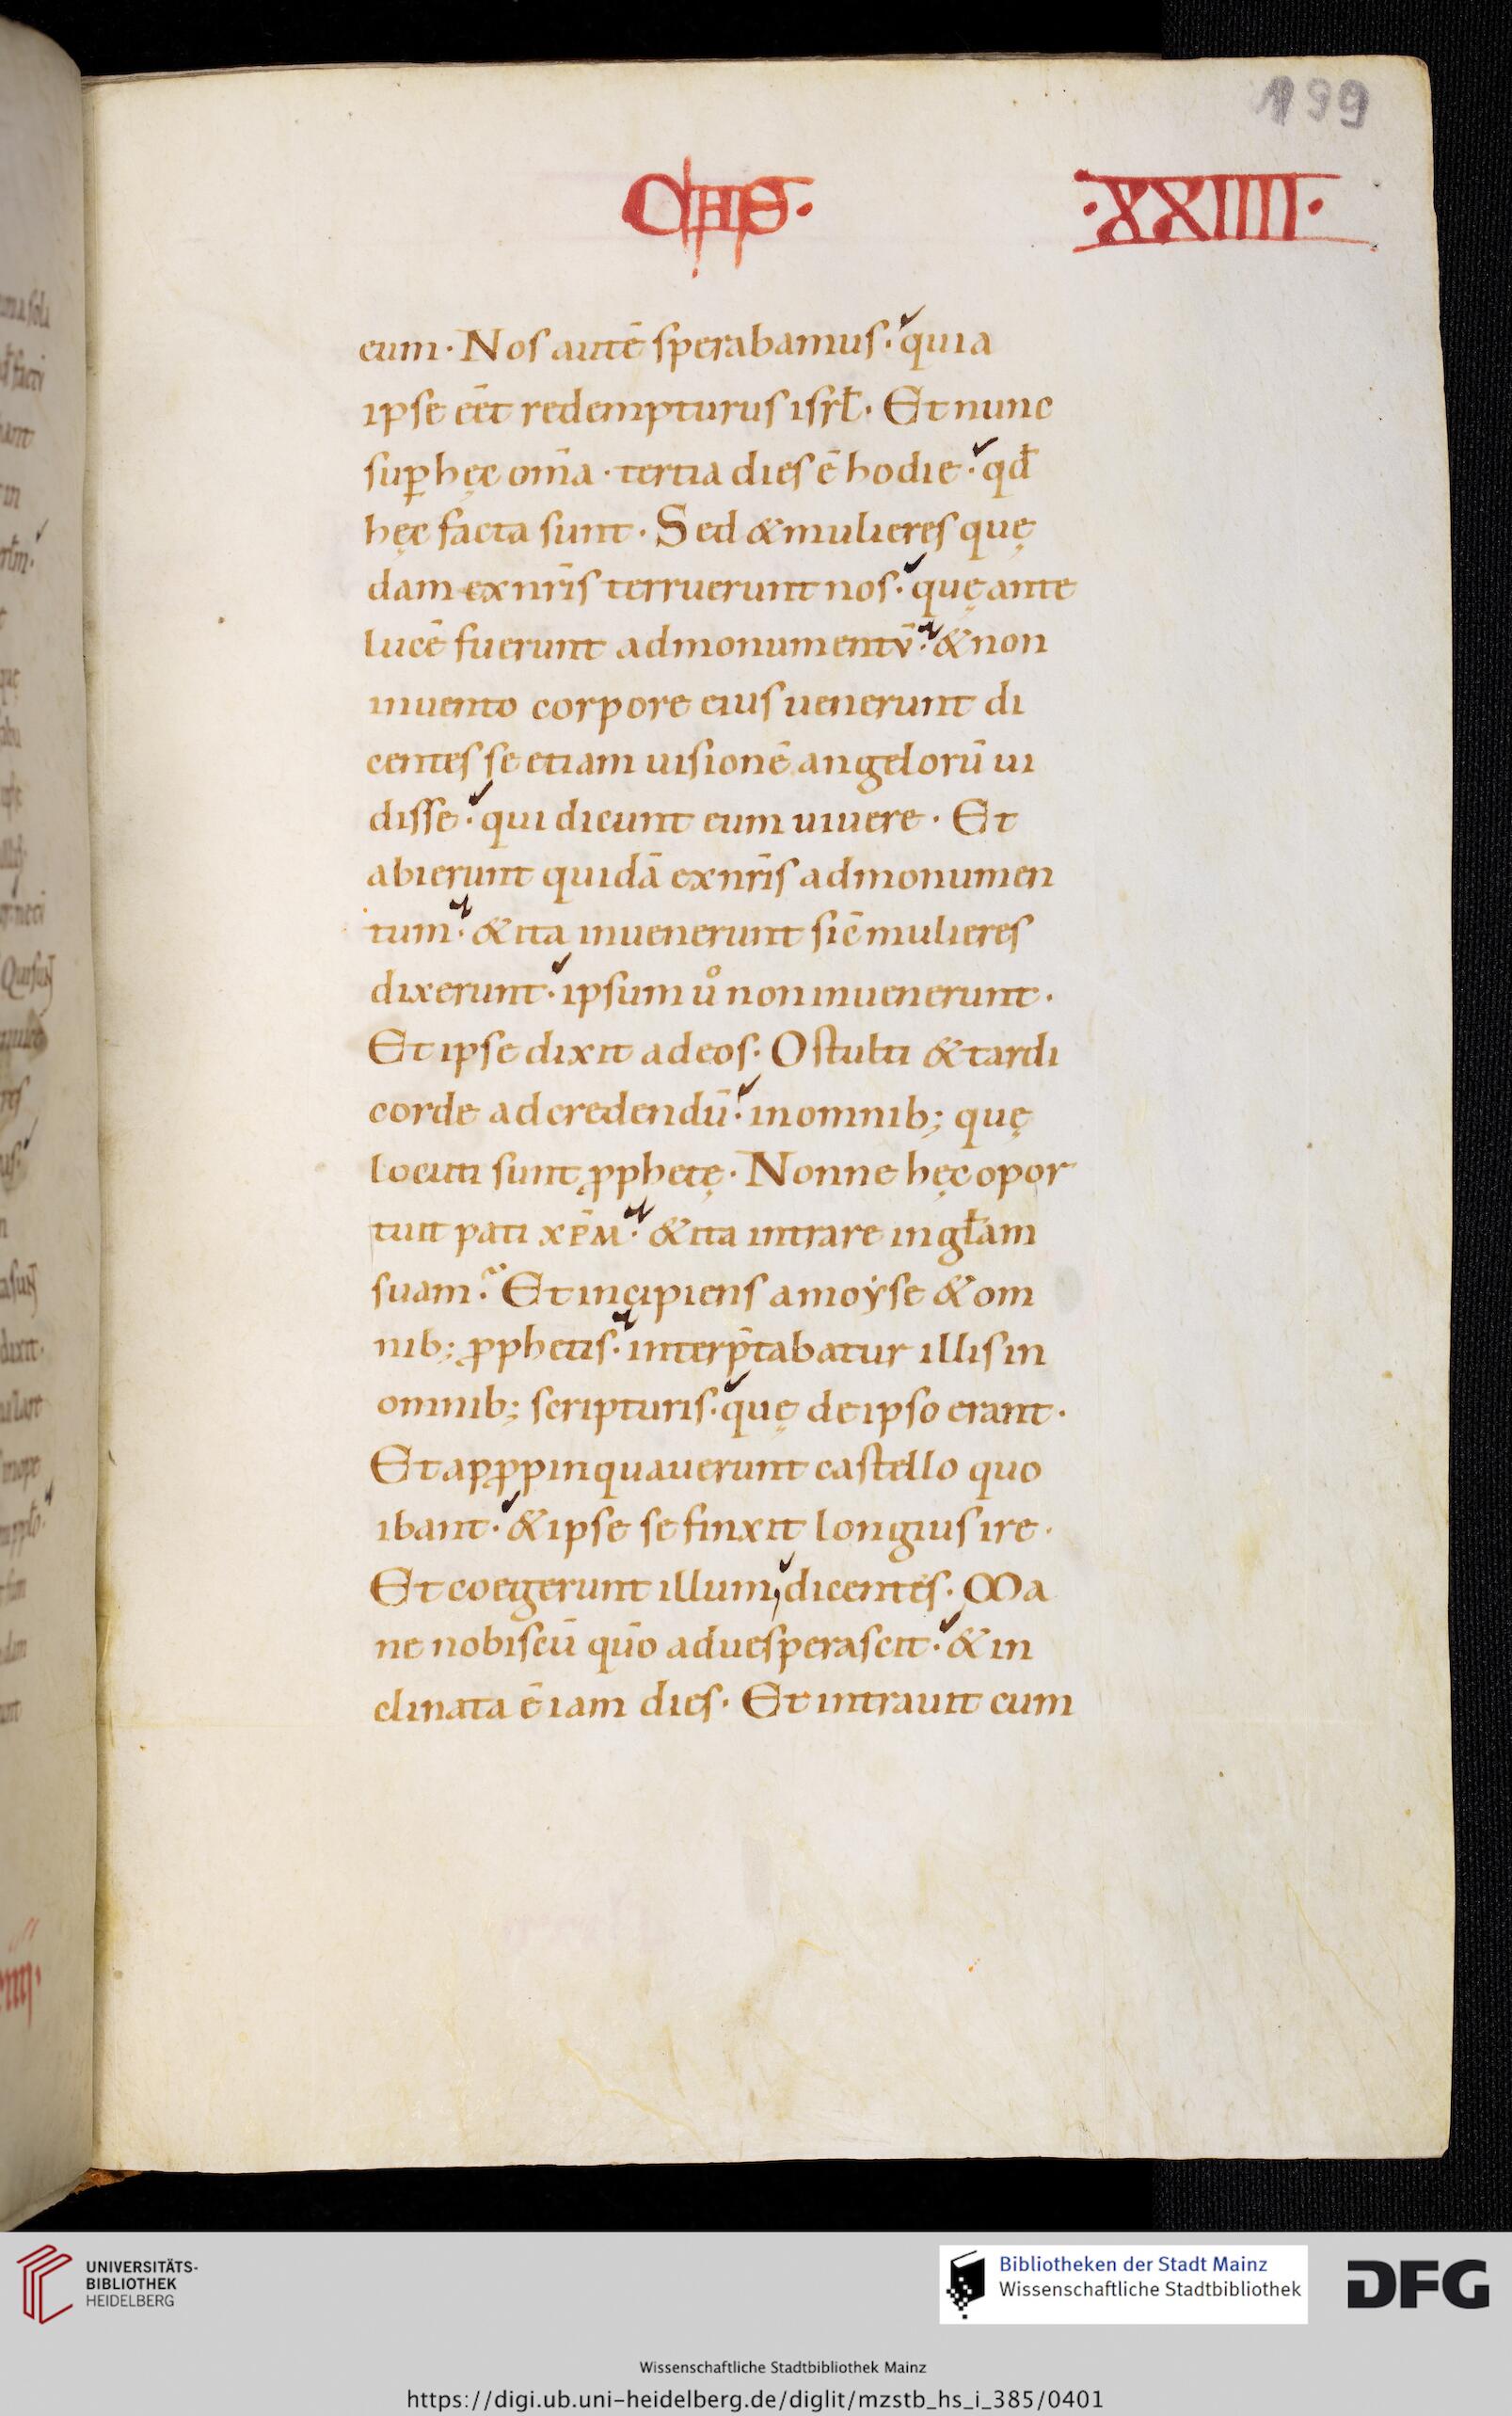 199
·XXIIII·
eum · Nos autē sperabamus · quia
ipse eēt redempturus isrł · Et nunc
suꝑ hęc om̄a · tertia dies ē hodie · qđ
hęc facta sunt · Sed & mulieres quę
dam ex nr̄is terruerunt nos · quę ante
lucē fuerunt ad monumentv̄ · & non
inuento corpore eius uenerunt di
centes se etiam uisionē angelorū ui
disse · qui dicunt eum uiuere · Et
abierunt quidā ex nr̄is ad monumen
tum · & ita inuenerunt sic̄ mulieres
dixerunt · ipsum uͦ non inuenerunt ·
Et ipse dixit ad eos · O stulti & tardi
corde ad credendū · in omnib; quę
locuti sunt ꝓphetę · Nonne hęc opor
tuit pati xp̄m · & ita intrare in gła̅m
suam · Et incipiens a moẏse & om
nib; ꝓphetis · interp̄tabatur illis in
omnib; scripturis · quę de ipso erant ·
Et apꝓpinquauerunt castello quo
ibant · & ipse se finxit longius ire ·
Et coegerunt illum, dicentes · Ma
ne nobiscū qūo aduesperascit · & in
clinata ē iam dies · Et intrauit cum
UNIVERSITÄTS-
BIBLIOTHEK
HEIDELBERG
Bibliotheken der Stadt Mainz
Wissenschaftliche Stadtbibliothek
DFG
Wissenschaftliche Stadtbibliothek Mainz
https://digi.ub.uni-heidelberg.de/diglit/mzstb_hs_i_385/0401